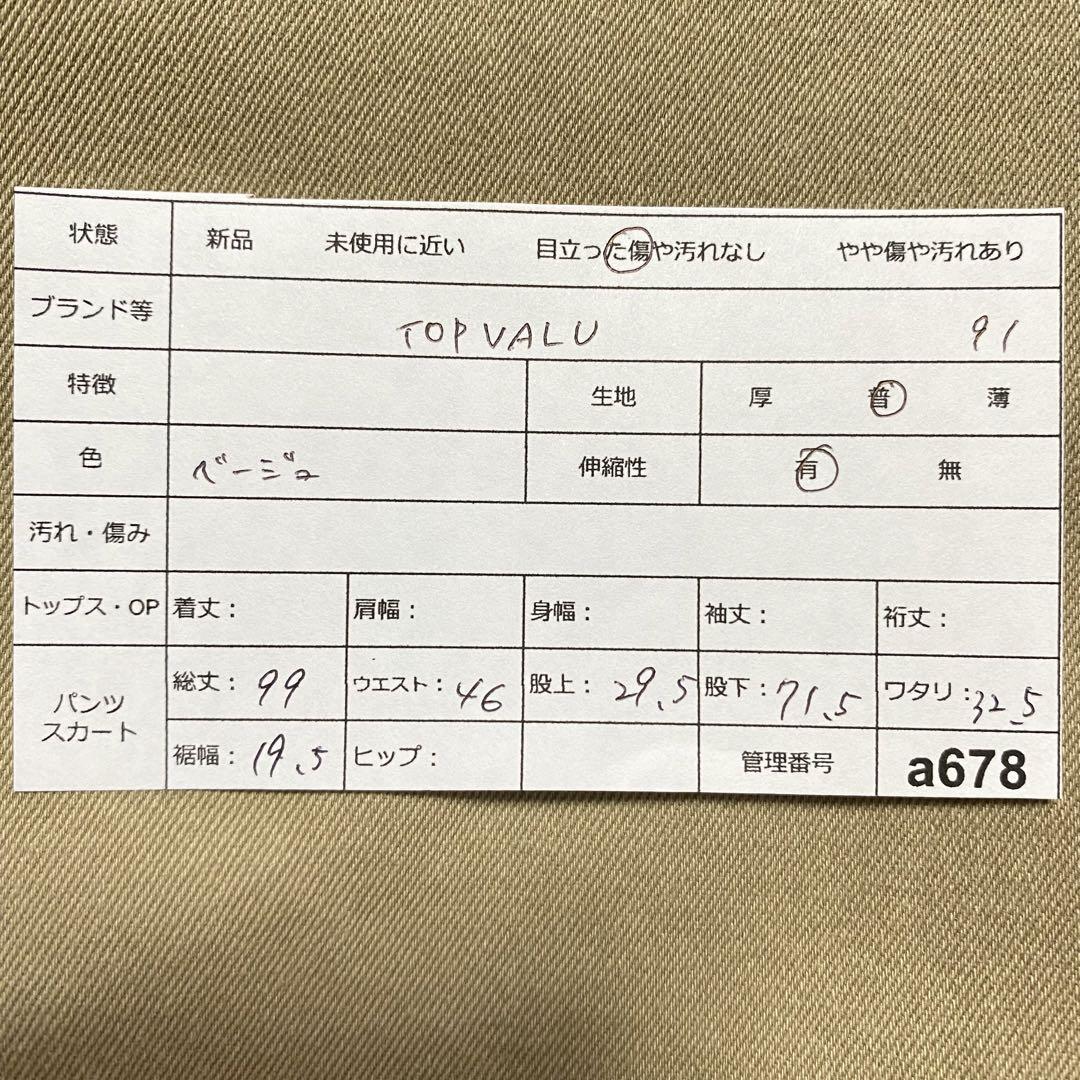 状態 新品 未使用に近い 目立った傷や汚れなし やや傷や汚れあり
ブランド等 TOPVALU 91
特徴 生地 厚 普 薄
色 ベージュ 伸縮性 有 無
汚れ・傷み
トップス・OP 着丈: 肩幅: 身幅: 袖丈: 裄丈:
パンツ スカート
総丈: 99 ウエスト: 46 股上: 29.5 股下: 71.5 ワタリ: 32.5
裾幅: 19.5 ヒップ: 管理番号 a678